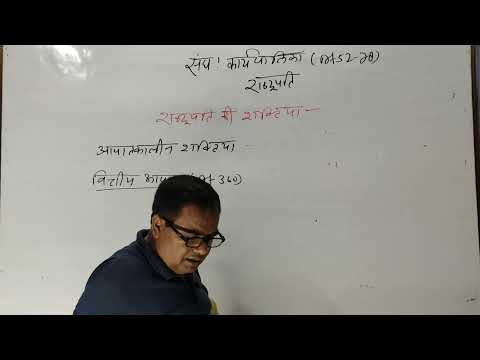 संघ: कार्यपालिका (Art 52-78)
राष्ट्रपति
राष्ट्रपति की शक्तियां -
आपातकालीन शक्तियां -
वित्तीय 360)